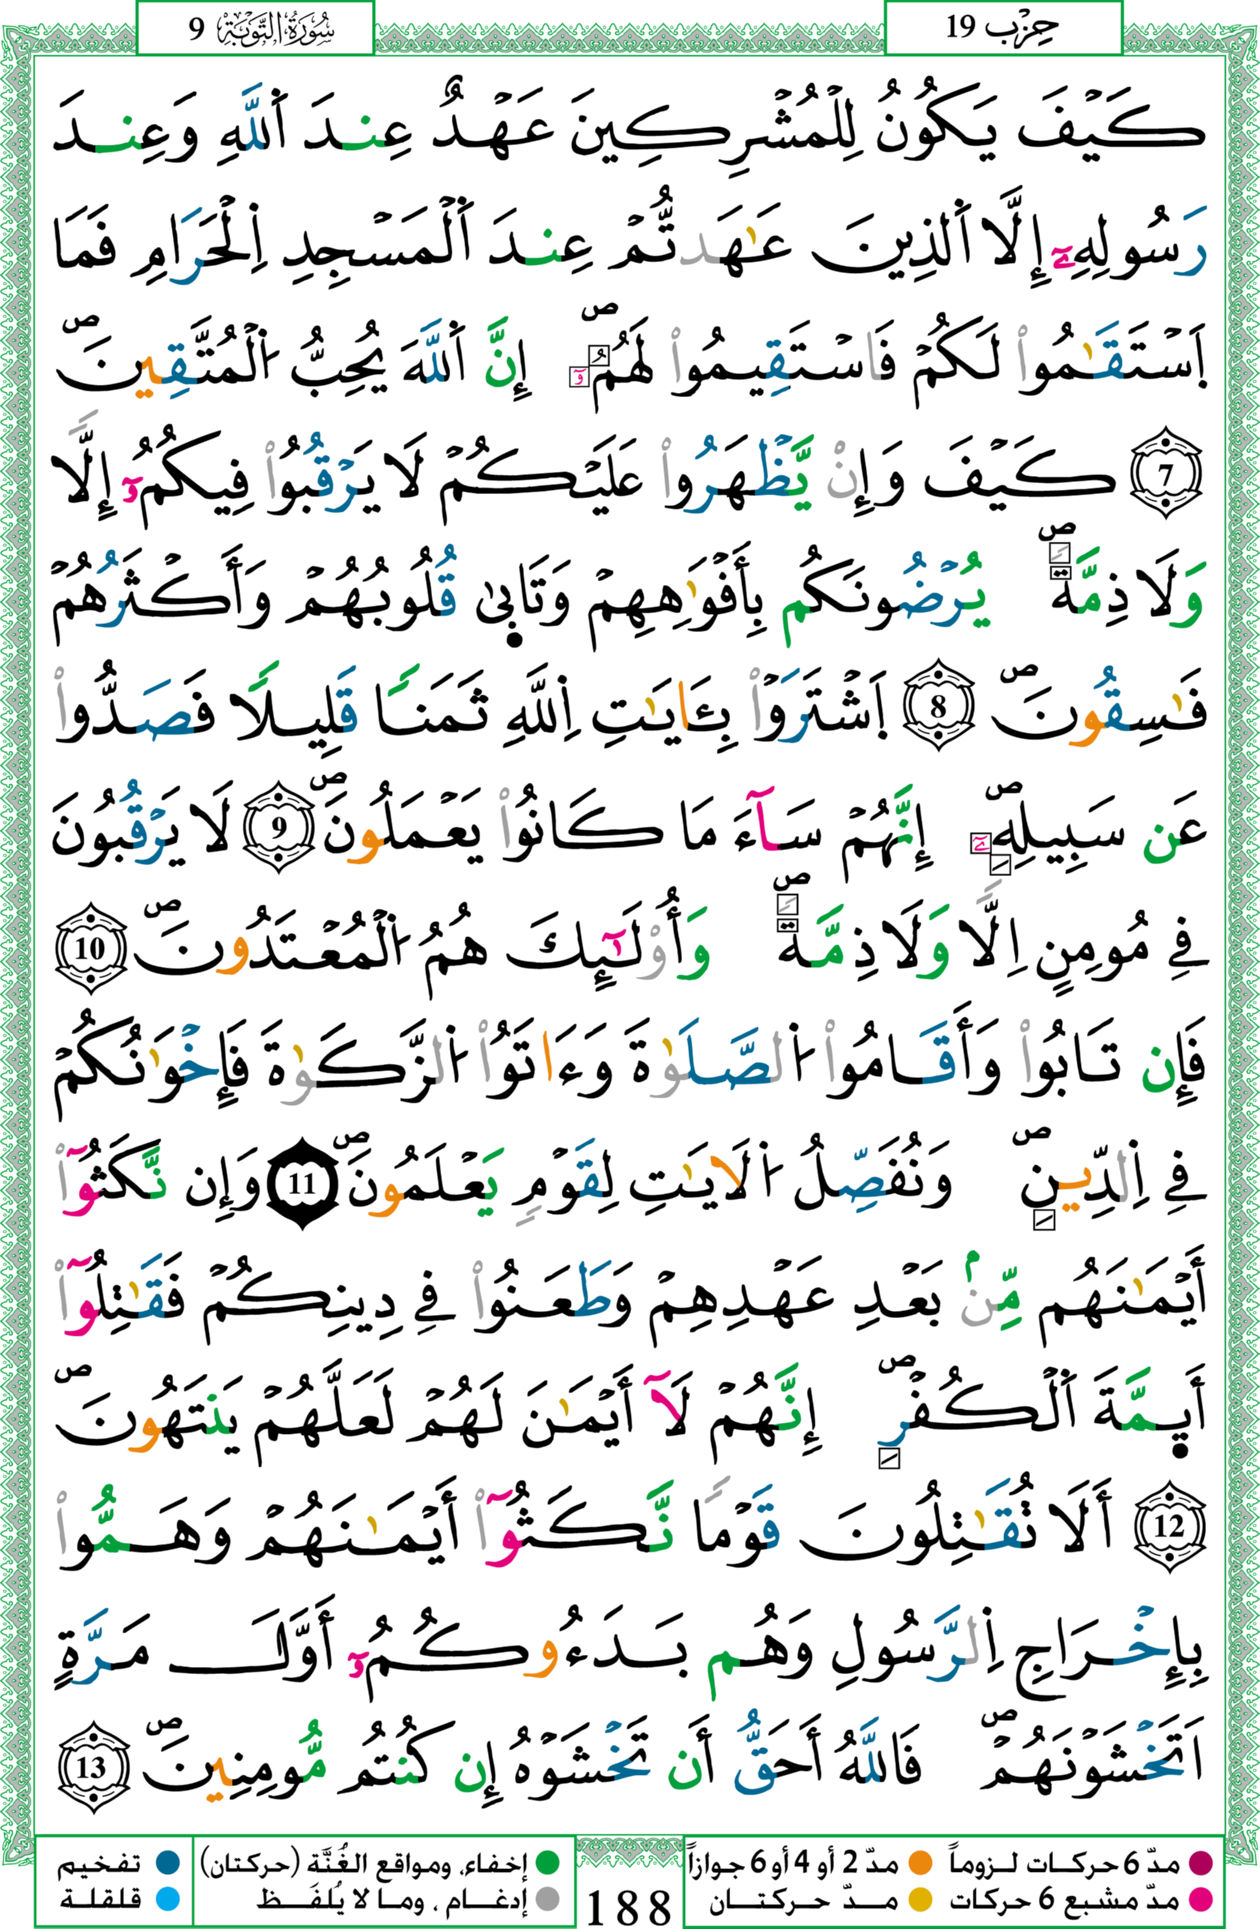 حِزْب 19
سُورَةُ التَّوْبَةِ 9
كَيْفَ يَكُونُ لِلْمُشْرِكِينَ عَهْدٌ عِندَ اَ۬للَّهِ وَعِندَ
رَسُولِهِۦٓ إِلَّا اَ۬لذِينَ عَٰهَدتُّمْ عِندَ اَ۬لْمَسْجِدِ اِ۬لْحَرَامِ فَمَا
اَ۪سْتَقَٰمُواْ لَكُمْ فَاسْتَقِيمُواْ لَهُمُۥٓۖ إِنَّ اَ۬للَّهَ يُحِبُّ اُ۬لْمُتَّقِينَۖ
7 كَيْفَ وَإِنْ يَّظْهَرُواْ عَلَيْكُمْ لَا يَرْقُبُواْ فِيكُمُۥٓ إِلّاٗ
وَلَا ذِمَّةٗۖ يُرْضُونَكُم بِأَفْوَٰهِهِمْ وَتَأْب۪ىٰ قُلُوبُهُمْ وَأَكْثَرُهُمْ
فَٰسِقُونَۖ 8 اَ۪شْتَرَوْاْ بِـَٔايَٰتِ اِ۬للَّهِ ثَمَناٗ قَلِيلاٗ فَصَدُّواْ
عَن سَبِيلِهِۦٓۖ إِنَّهُمْ سَآءَ مَا كَانُواْ يَعْمَلُونَۖ 9 لَا يَرْقُبُونَ
فِے مُومِنٍ اِلّاٗ وَلَا ذِمَّةٗۖ وَأُوْلَٰٓئِكَ هُمُ اُ۬لْمُعْتَدُونَۖ 10
فَإِن تَابُواْ وَأَقَامُواْ اُ۬لصَّلَوٰةَ وَءَاتَوُاْ اُ۬لزَّكَوٰةَ فَإِخْوَٰنُكُمْ
فِے اِ۬لدِّينِۖ وَنُفَصِّلُ اُ۬لَايَٰتِ لِقَوْمٖ يَعْلَمُونَۖ 11 وَإِن نَّكَثُوٓاْ
أَيْمَٰنَهُم مِّنۢ بَعْدِ عَهْدِهِمْ وَطَعَنُواْ فِے دِينِكُمْ فَقَٰتِلُوٓاْ
أَى۪مَّةَ اَ۬لْكُفْرِۖ إِنَّهُمْ لَآ أَيْمَٰنَ لَهُمْ لَعَلَّهُمْ يَنتَهُونَۖ
12 أَلَا تُقَٰتِلُونَ قَوْماٗ نَّكَثُوٓاْ أَيْمَٰنَهُمْ وَهَمُّواْ
بِإِخْرَاجِ اِ۬لرَّسُولِ وَهُم بَدَءُوكُمُۥٓ أَوَّلَ مَرَّةٍ
اَتَخْشَوْنَهُمْۖ فَاللَّهُ أَحَقُّ أَن تَخْشَوْهُ إِن كُنتُم مُّومِنِينَۖ 13
مدّ 6 حركات لـزوماً مدّ 2 أو 4 أو 6 جوازاً
مدّ مشبع 6 حركات مـدّ حـركتـان
188
إخفاء، ومواقع الغُنَّة (حركتان) تفخيم
إدغـام ، ومـا لا يُلفَـظ قلقلة